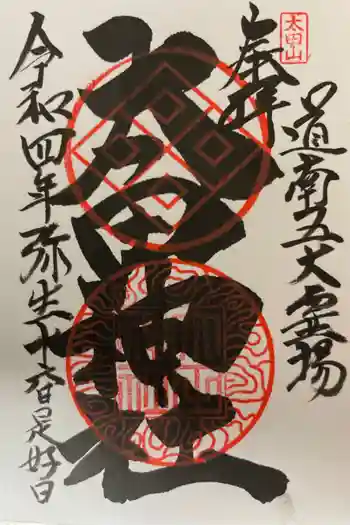 太田山
道南五大霊場
奉拝
太田神社
令和四年弥生 日是好日